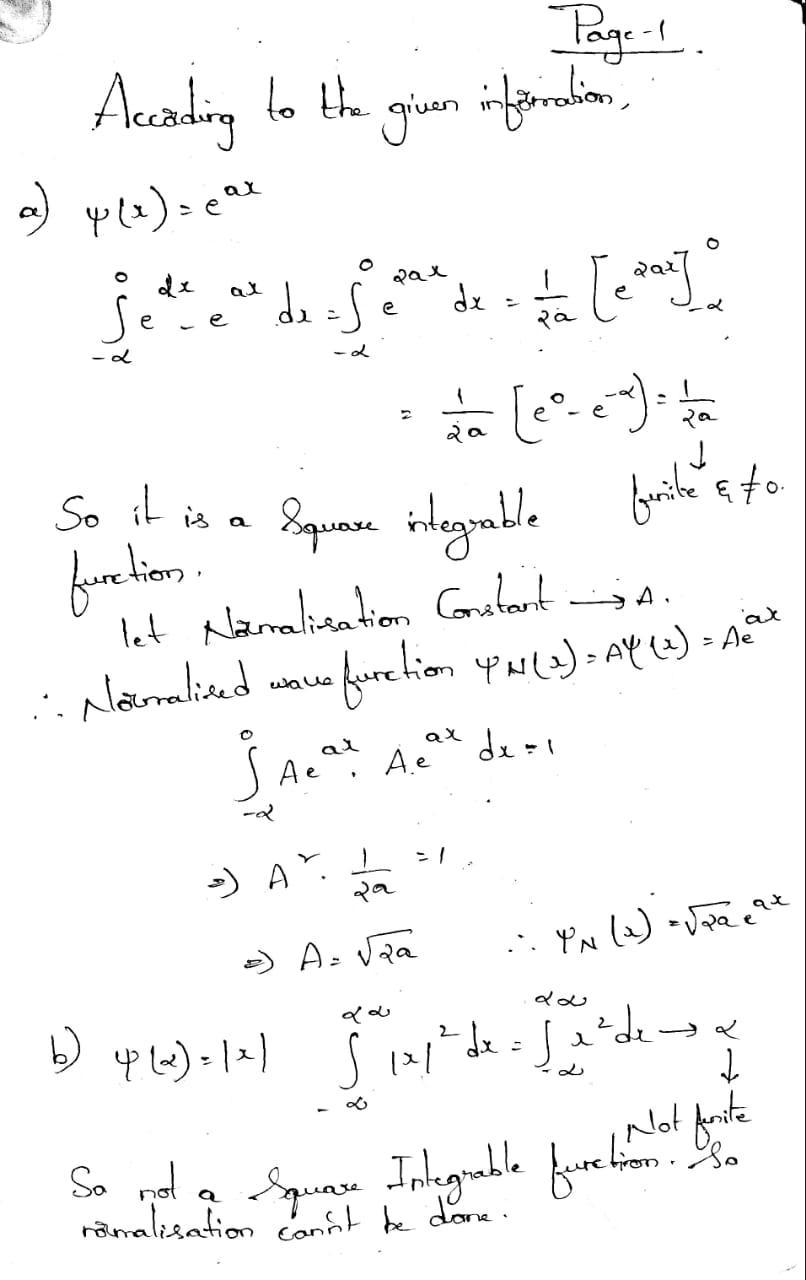 Page-1.
According to the given information,
a) ψ(x) = e^{ax}
∫_{-α}^{0} e^{dx} - e^{ax} dx = ∫_{-α}^{0} e^{2ax} dx = 1/2a [e^{2ax}]_{-α}^{0}
= 1/2a [e^0 - e^{-α}) = 1/2a
↓
So it is a Square integrable finite & ≠ 0.
function.
let Normalisation Constant → A.
∴ Normalised wave function ψ_N(x) = Aψ(x) = Ae^{ax}
∫_{-α}^{0} Ae^{ax} . A.e^{ax} dx = 1
⇒ A^2 . 1/2a = 1.
⇒ A = √2a ∴ ψ_N(x) = √2a e^{ax}
b) ψ(x) = |x| ∫_{-∞}^{α∞} |x|^2 dx = ∫_{-∞}^{α∞} x^2 dx → α
↓
Not finite
So not a Square Integrable function. So
normalisation can't be done.